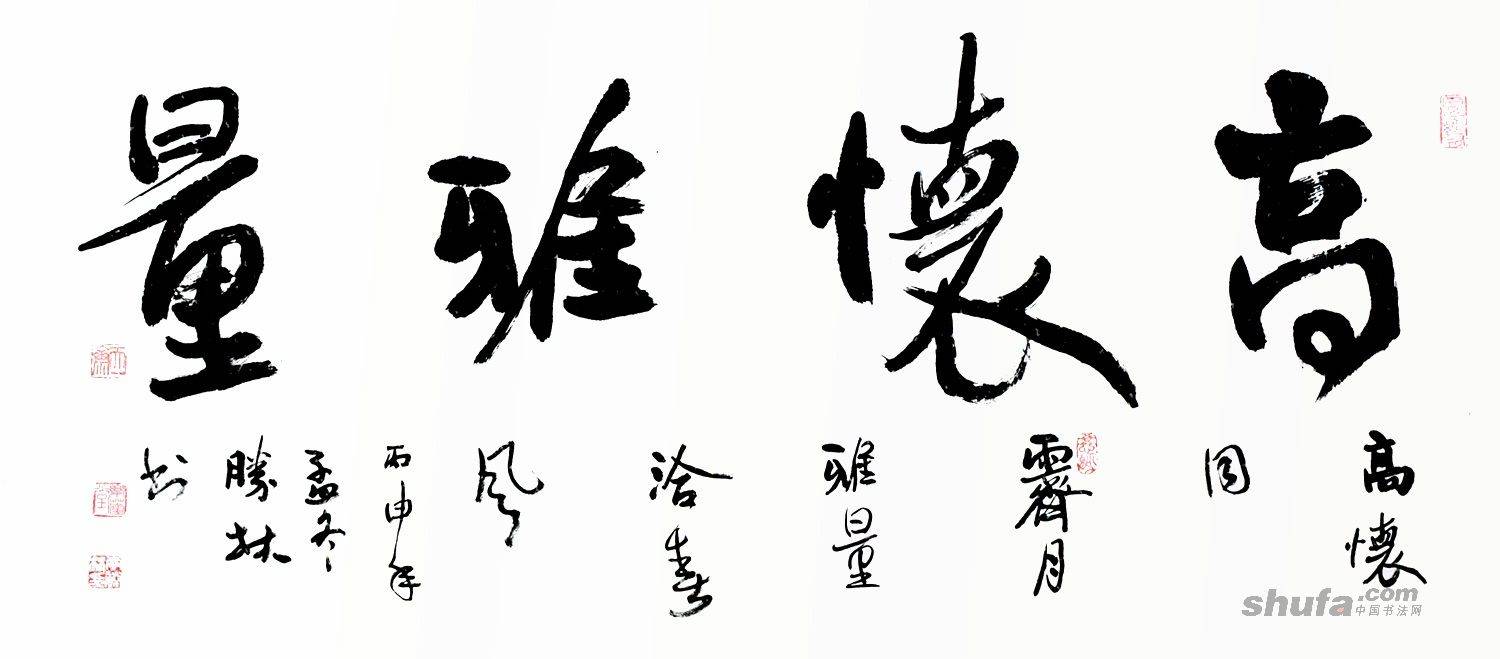 高懷雅量
高懷
同
霽月
雅量
洽春
风
丙申年
孟冬
勝林
书
shufa.com
中国书法网